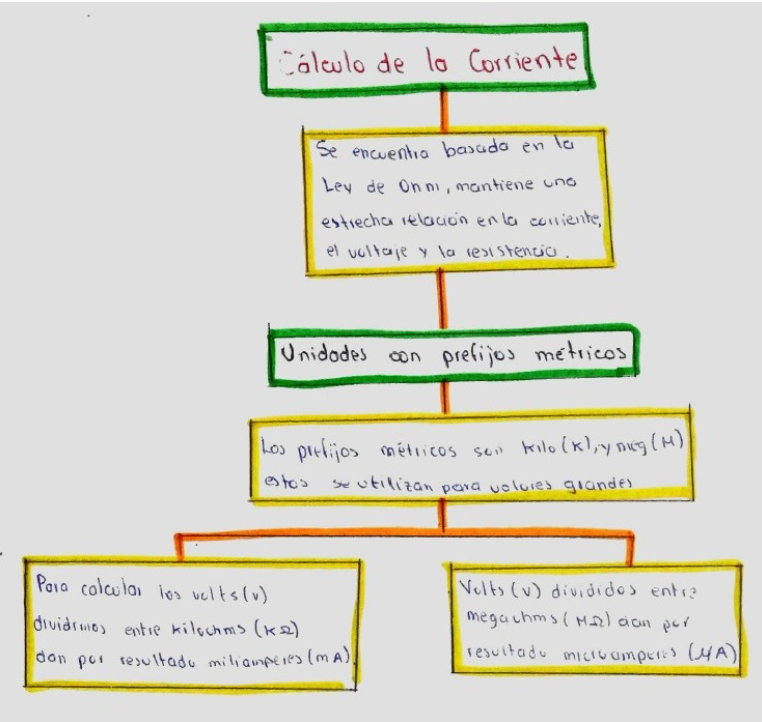 Cálculo de la Corriente
Se encuentra basada en la
Ley de Ohm, mantiene una
estrecha relación en la corriente,
el voltaje y la resistencia.
Unidades con prefijos métricos
Los prefijos métricos son kilo (K), y meg (M)
estos se utilizan para valores grandes
Para calcular los volts (v)
dividimos entre kilochms (KΩ)
dan por resultado miliamperes (mA)
Volts (v) divididos entre
megaohms (MΩ) dan por
resultado microamperes (MA)